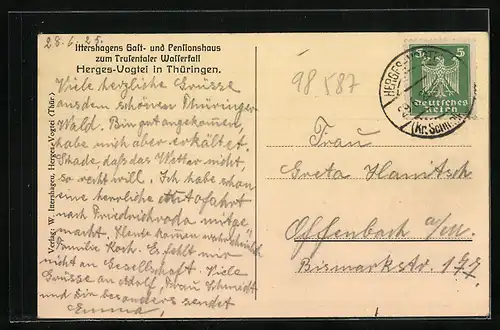 28.6.25.
Ittershagens Gast- und Pensionshaus
zum Trusentaler Wasserfall
Herges-Vogtei in Thüringen.
Viele herzliche Grüsse
aus dem schönen Thüringer
Wald. Bin gut angekommen,
habe mich aber erkältet.
Schade, daß das Wetter nicht
so recht will. Ich habe schon
eine herrliche Autofahrt
nach Friedrichroda mitge-
macht. Heute kommen wahrscheinlich
Familie Koch. Es fehlt mir
nicht an Gesellschaft. Viele
Grüsse an Adolf, Frau Schmidt
und Sie besonders sendet
Emma.
Verlag: W. Ittershagen, Herges-Vogtei (Thür.)
98587
5 5
Deutsches
Reich
HERGES-
(Kr. Schm
Frau
Greta Hanitsch
Offenbach a/M.
Bismarkstr. 177